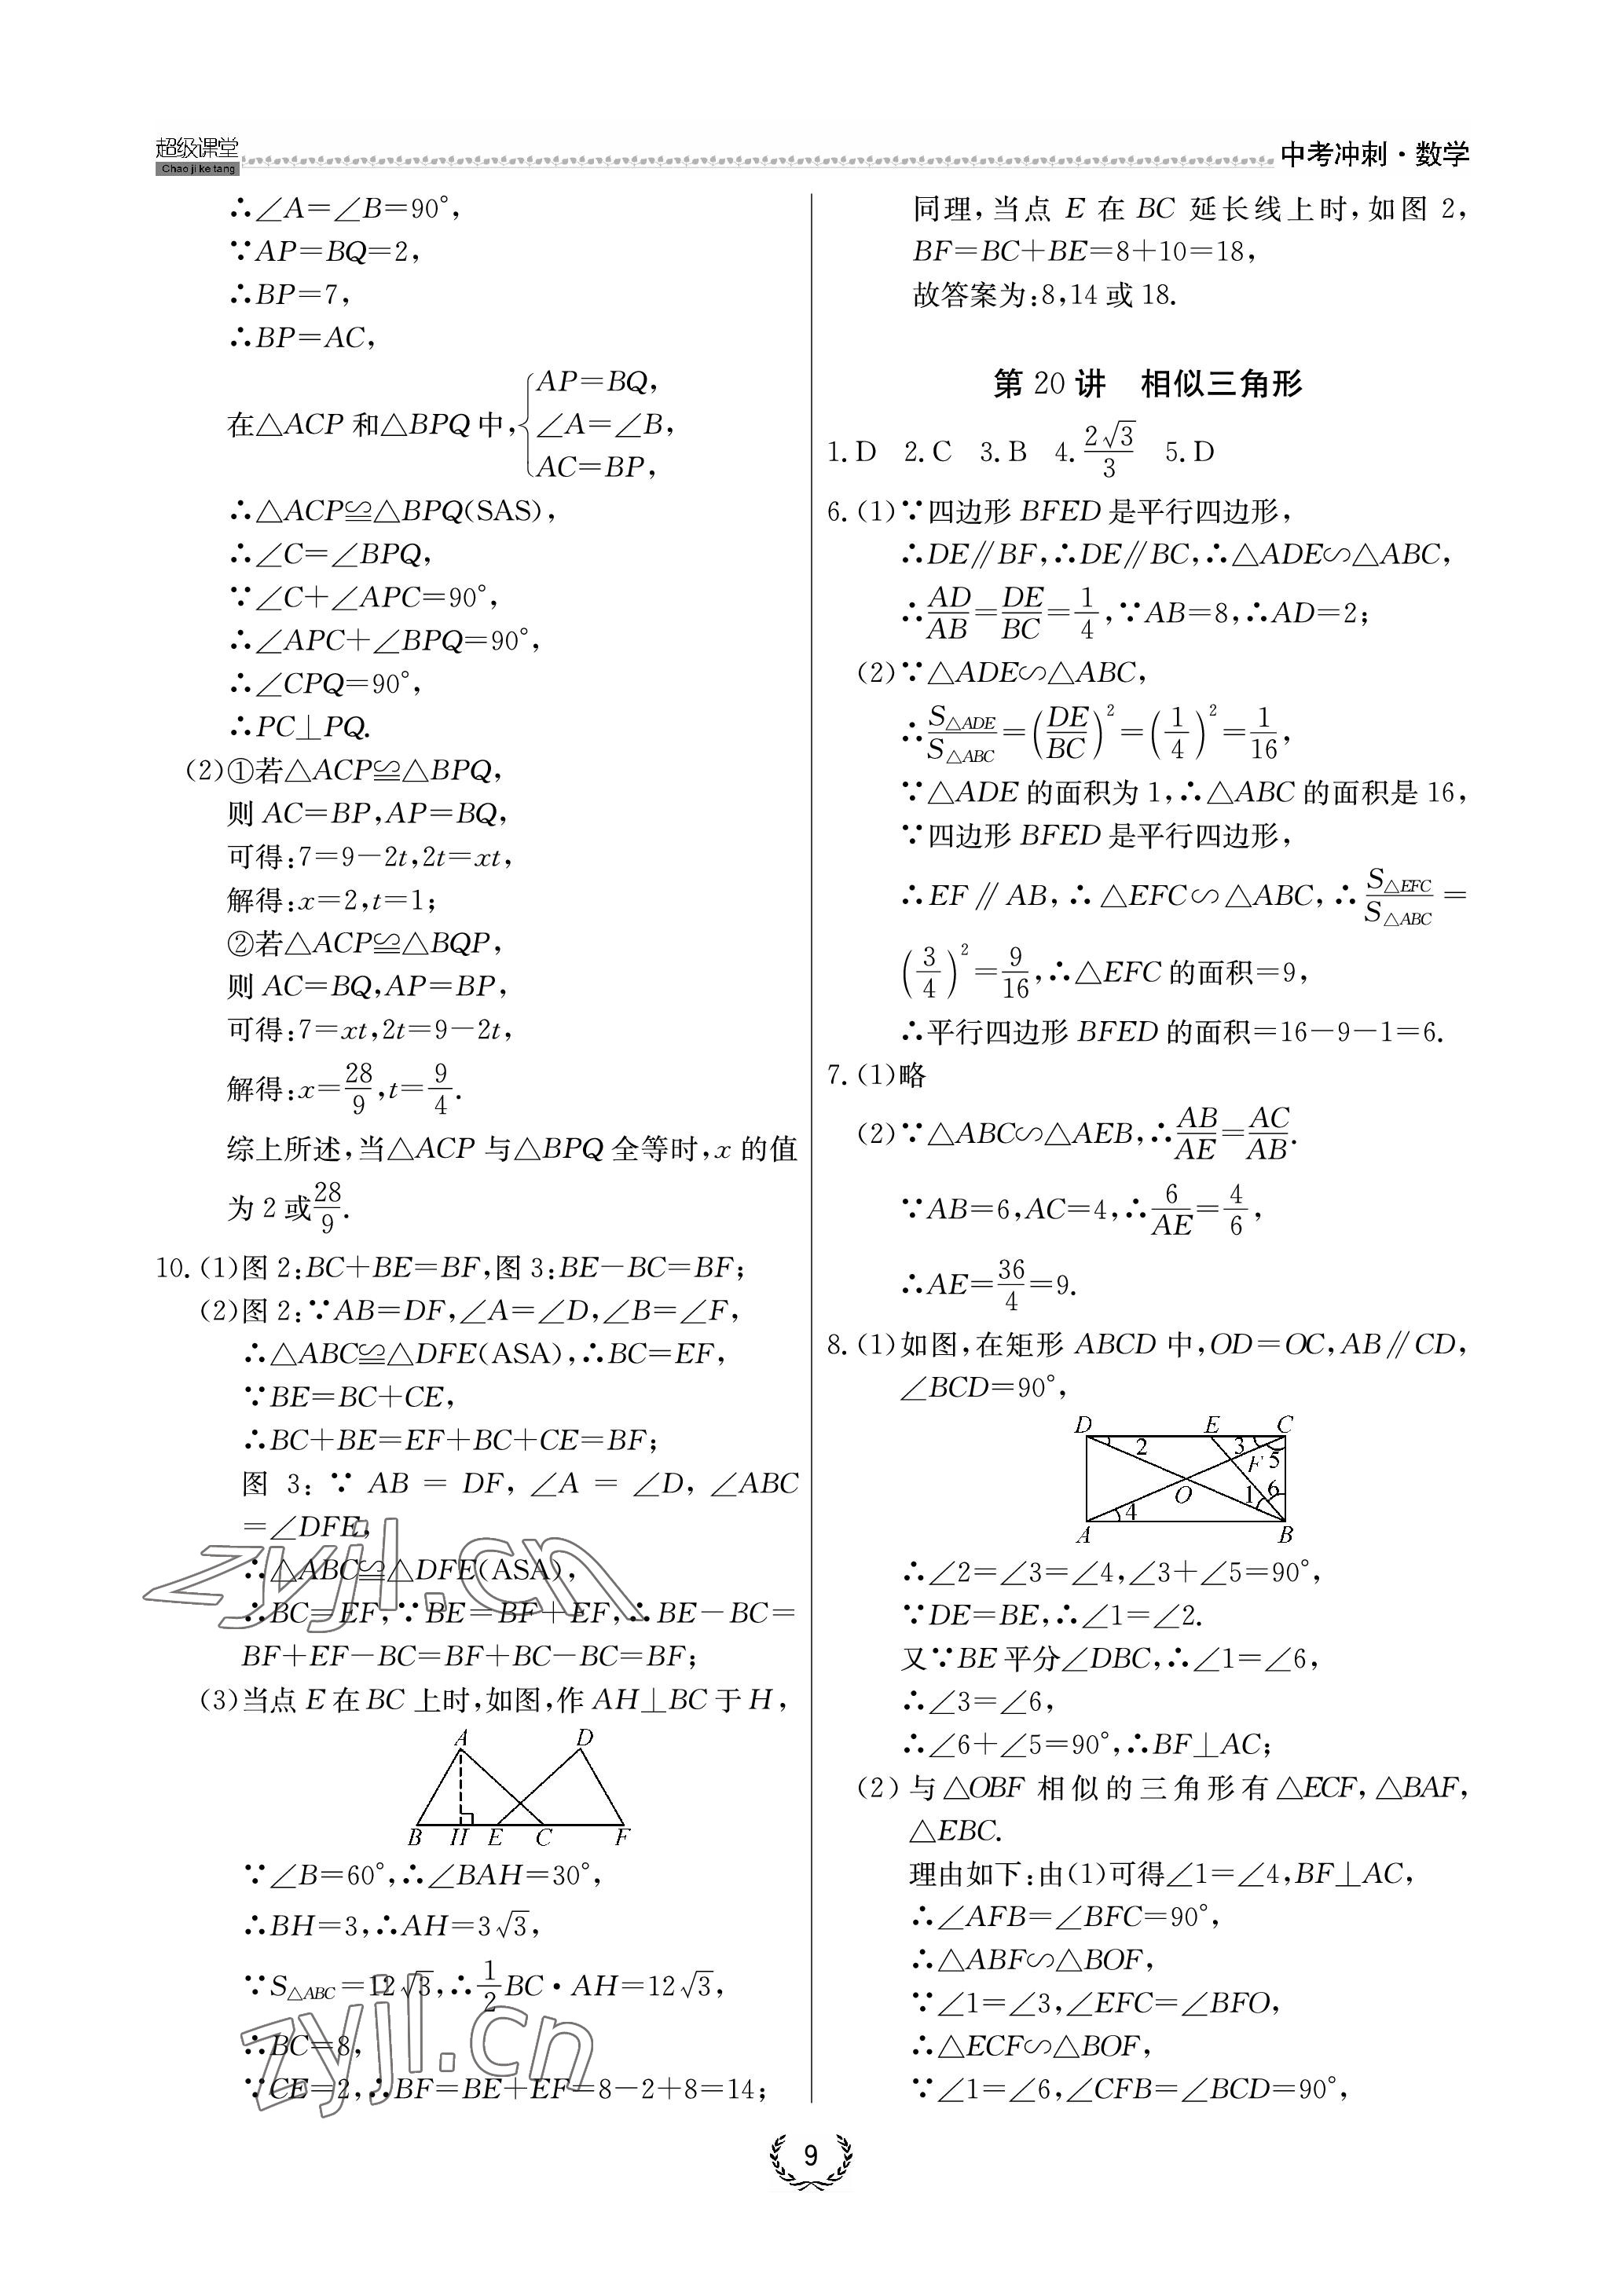 超级课堂
Chao ji ke tang
中考冲刺·数学
∴∠A=∠B=90°,
∵AP=BQ=2,
∴BP=7,
∴BP=AC,
在△ACP和△BPQ中,{AP=BQ,
∠A=∠B,
AC=BP,
∴△ACP≌△BPQ(SAS),
∴∠C=∠BPQ,
∵∠C+∠APC=90°,
∴∠APC+∠BPQ=90°,
∴∠CPQ=90°,
∴PC⊥PQ.
(2)①若△ACP≌△BPQ,
则AC=BP,AP=BQ,
可得:7=9-2t,2t=xt,
解得:x=2,t=1;
②若△ACP≌△BQP,
则AC=BQ,AP=BP,
可得:7=xt,2t=9-2t,
解得:x=28/9,t=9/4.
综上所述,当△ACP与△BPQ全等时,x的值
为2或28/9.
10.(1)图2:BC+BE=BF,图3:BE-BC=BF;
(2)图2:∵AB=DF,∠A=∠D,∠B=∠F,
∴△ABC≌△DFE(ASA),∴BC=EF,
∵BE=BC+CE,
∴BC+BE=EF+BC+CE=BF;
图3:∵AB=DF,∠A=∠D,∠ABC
=∠DFE,
∴△ABC≌△DFE(ASA),
∴BC=EF,∵BE=BF+EF,∴BE-BC=
BF+EF-BC=BF+BC-BC=BF;
(3)当点E在BC上时,如图,作AH⊥BC于H,
A D
B H E C F
∵∠B=60°,∴∠BAH=30°,
∴BH=3,∴AH=3√3,
∵S△ABC=12√3,∴1/2BC·AH=12√3,
∴BC=8,
∵CE=2,∴BF=BE+EF=8-2+8=14;
同理,当点E在BC延长线上时,如图2,
BF=BC+BE=8+10=18,
故答案为:8,14或18.
第20讲 相似三角形
1.D 2.C 3.B 4.2√3/3 5.D
6.(1)∵四边形BFED是平行四边形,
∴DE∥BF,∴DE∥BC,∴△ADE∽△ABC,
∴AD/AB=DE/BC=1/4,∵AB=8,∴AD=2;
(2)∵△ADE∽△ABC,
∴S△ADE/S△ABC=(DE/BC)²=(1/4)²=1/16,
∵△ADE的面积为1,∴△ABC的面积是16,
∵四边形BFED是平行四边形,
∴EF∥AB,∴△EFC∽△ABC,∴S△EFC/S△ABC=
(3/4)²=9/16,∴△EFC的面积=9,
∴平行四边形BFED的面积=16-9-1=6.
7.(1)略
(2)∵△ABC∽△AEB,∴AB/AE=AC/AB.
∵AB=6,AC=4,∴6/AE=4/6,
∴AE=36/4=9.
8.(1)如图,在矩形ABCD中,OD=OC,AB∥CD,
∠BCD=90°,
D E C
2 3 F 5
O 1 6
4
A B
∴∠2=∠3=∠4,∠3+∠5=90°,
∵DE=BE,∴∠1=∠2.
又∵BE平分∠DBC,∴∠1=∠6,
∴∠3=∠6,
∴∠6+∠5=90°,∴BF⊥AC;
(2)与△OBF相似的三角形有△ECF,△BAF,
△EBC.
理由如下:由(1)可得∠1=∠4,BF⊥AC,
∴∠AFB=∠BFC=90°,
∴△ABF∽△BOF,
∵∠1=∠3,∠EFC=∠BFO,
∴△ECF∽△BOF,
∵∠1=∠6,∠CFB=∠BCD=90°,
9
zyjl.cn
zyjl.cn